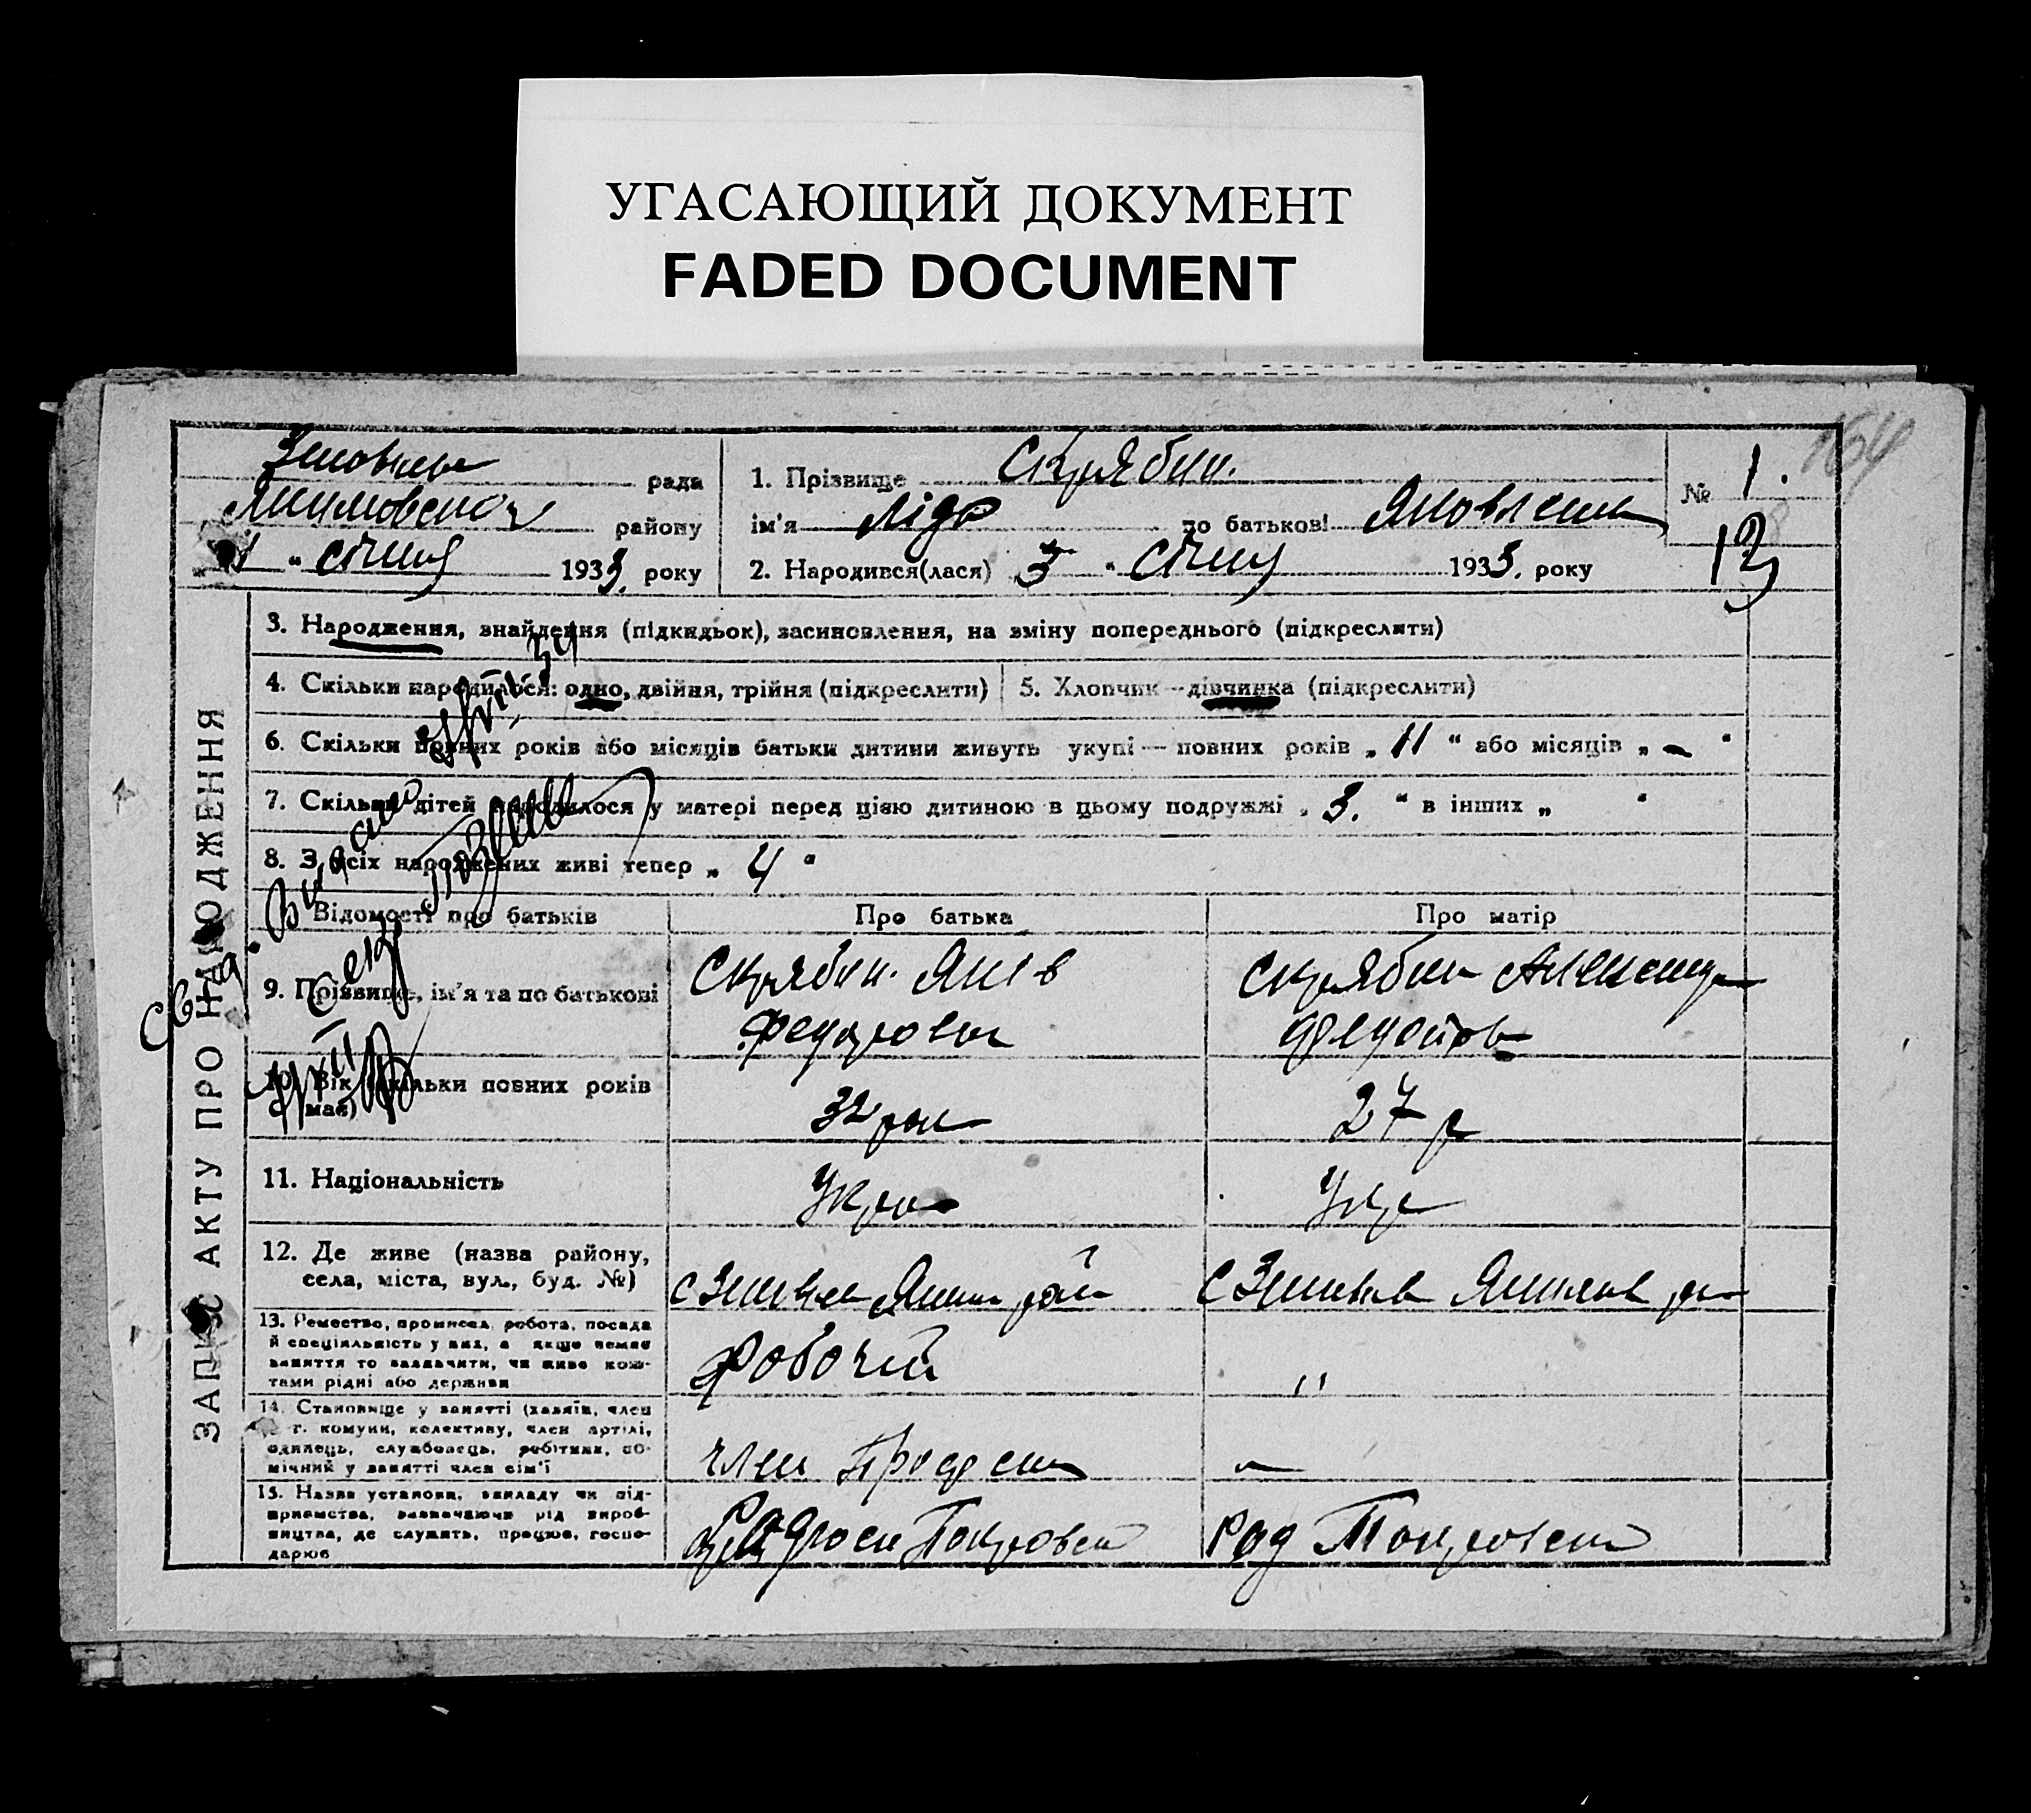 УГАСАЮЩИЙ ДОКУМЕНТ
FADED DOCUMENT
164
рада
району
" січня 1933. року
1. Прізвище Скрябин.
ім'я Ліда по батькові Яковлевна
2. Народився(лася) 3 " Січня 1933. року
№ 1.
13
ЗАПИС АКТУ ПРО НАРОДЖЕННЯ
3. Народження, знайдення (підкидьок), засиновлення, на зміну попереднього (підкреслити)
4. Скільки народилося: одно, двійня, трійня (підкреслити)
5. Хлопчик — дівчинка (підкреслити)
6. Скільки повних років або місяців батьки дитини живуть укупі — повних років „ 11 “ або місяців „ – “
7. Скільки дітей народилося у матері перед цією дитиною в цьому подружжі „ 3. “ в інших „ “
8. З усіх народжених живі тепер „ 4 “
Відомості про батьків
Про батька
Про матір
9. Прізвище, ім'я та по батькові
Скрябин. Яків
Федорович
Скрябин Александра
10. Вік (скільки повних років
має)
32 рок
27 р
11. Національність
Укра
Укр
12. Де живе (назва району,
села, міста, вул., буд. №)
13. Ремество, промисел, робота, посада
й спеціяльність у них, а якщо немає
заняття то зазначити, чи живе кош-
тами рідні або держави
Робочий
"
14. Становище у занятті (хазяїн, член
с.-г. комуни, колективу, член артілі,
одинець, службовець, робітник, по-
мічний у занятті член сім'ї
член Профсп
–
15. Назва установи, закладу чи під-
приємства, зазначаючи рід вироб-
ництва, де служить, працює, госпо-
дарює
Покровка
Рад Покровка